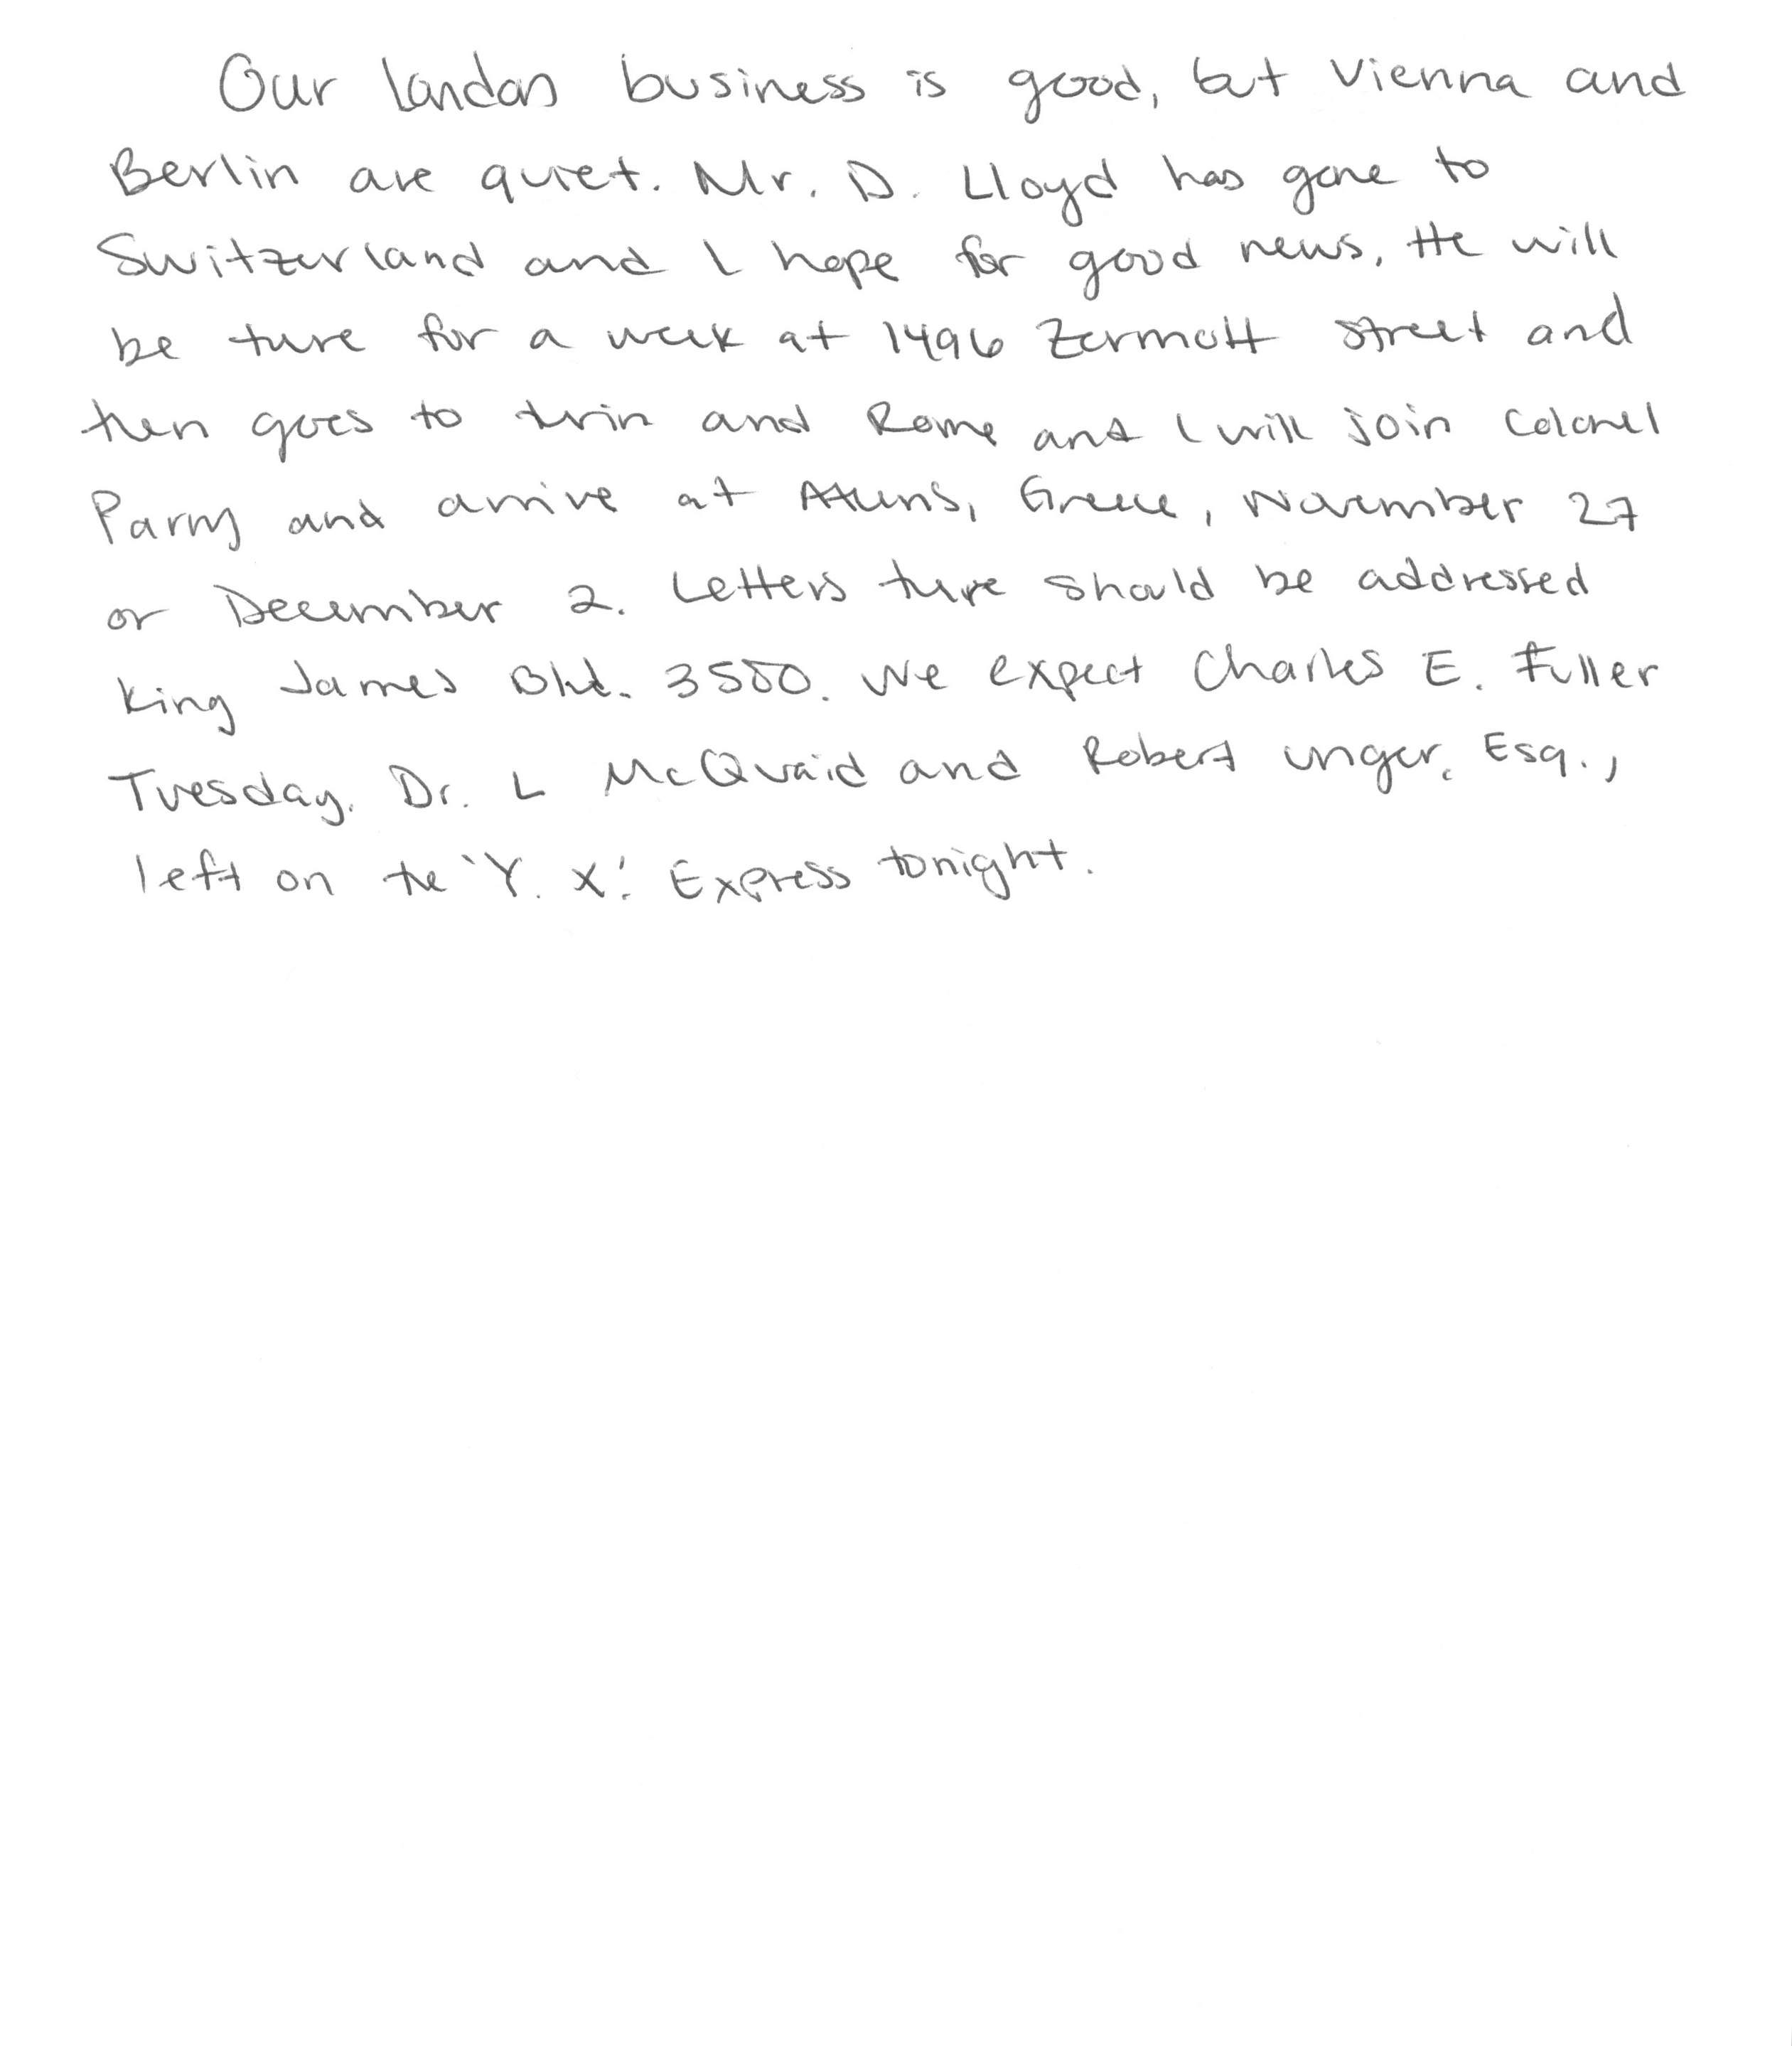 Our London business is good, but Vienna and
Berlin are quiet. Mr. D. Lloyd has gone to
Switzerland and I hope for good news. He will
be there for a week at 1496 Zermott Street and
then goes to Turin and Rome and I will join Colonel
Parry and arrive at Athens, Greece, November 27
or December 2. Letters there should be addressed
King James Blvd. 3580. We expect Charles E. Fuller
Tuesday. Dr. L McQuaid and Robert Unger, Esq.,
left on the 'Y. X.' Express tonight.